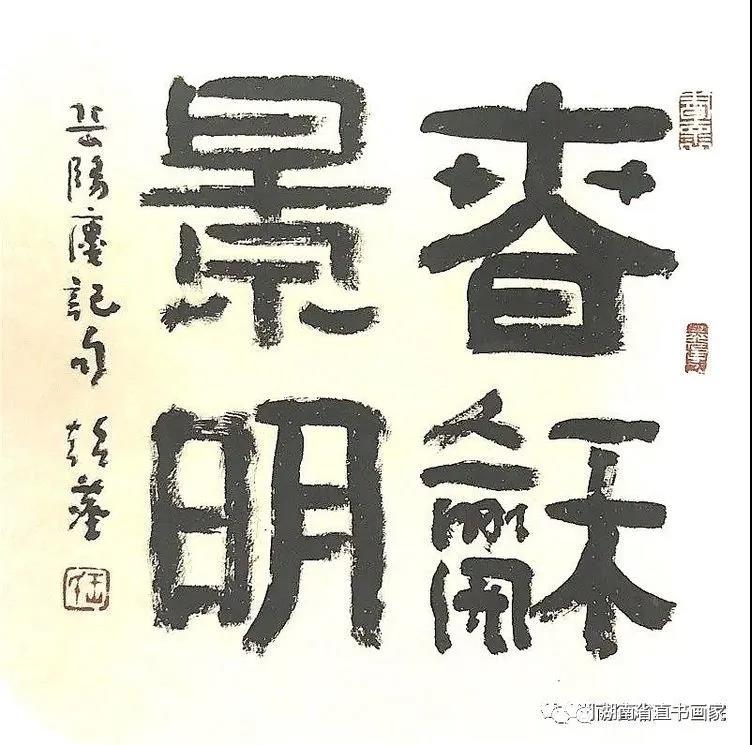 春龢
景明
岳陽廔記句
湖南省直书画家